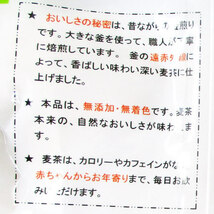 ★ おいしさの秘密は、昔ながらの 煎り
です。大きな釜を使って、職人が丁寧
に焙煎しています。 釜の遠赤外線に
よって、香ばしい味わい深い麦茶に仕
上げました。
★ 本品は、無添加・無着色です。麦茶
本来の、自然なおいしさが味わえま
す。
★ 麦茶は、カロリーやカフェインが
赤ち んからお年寄りまで、毎日お
みいただけます。